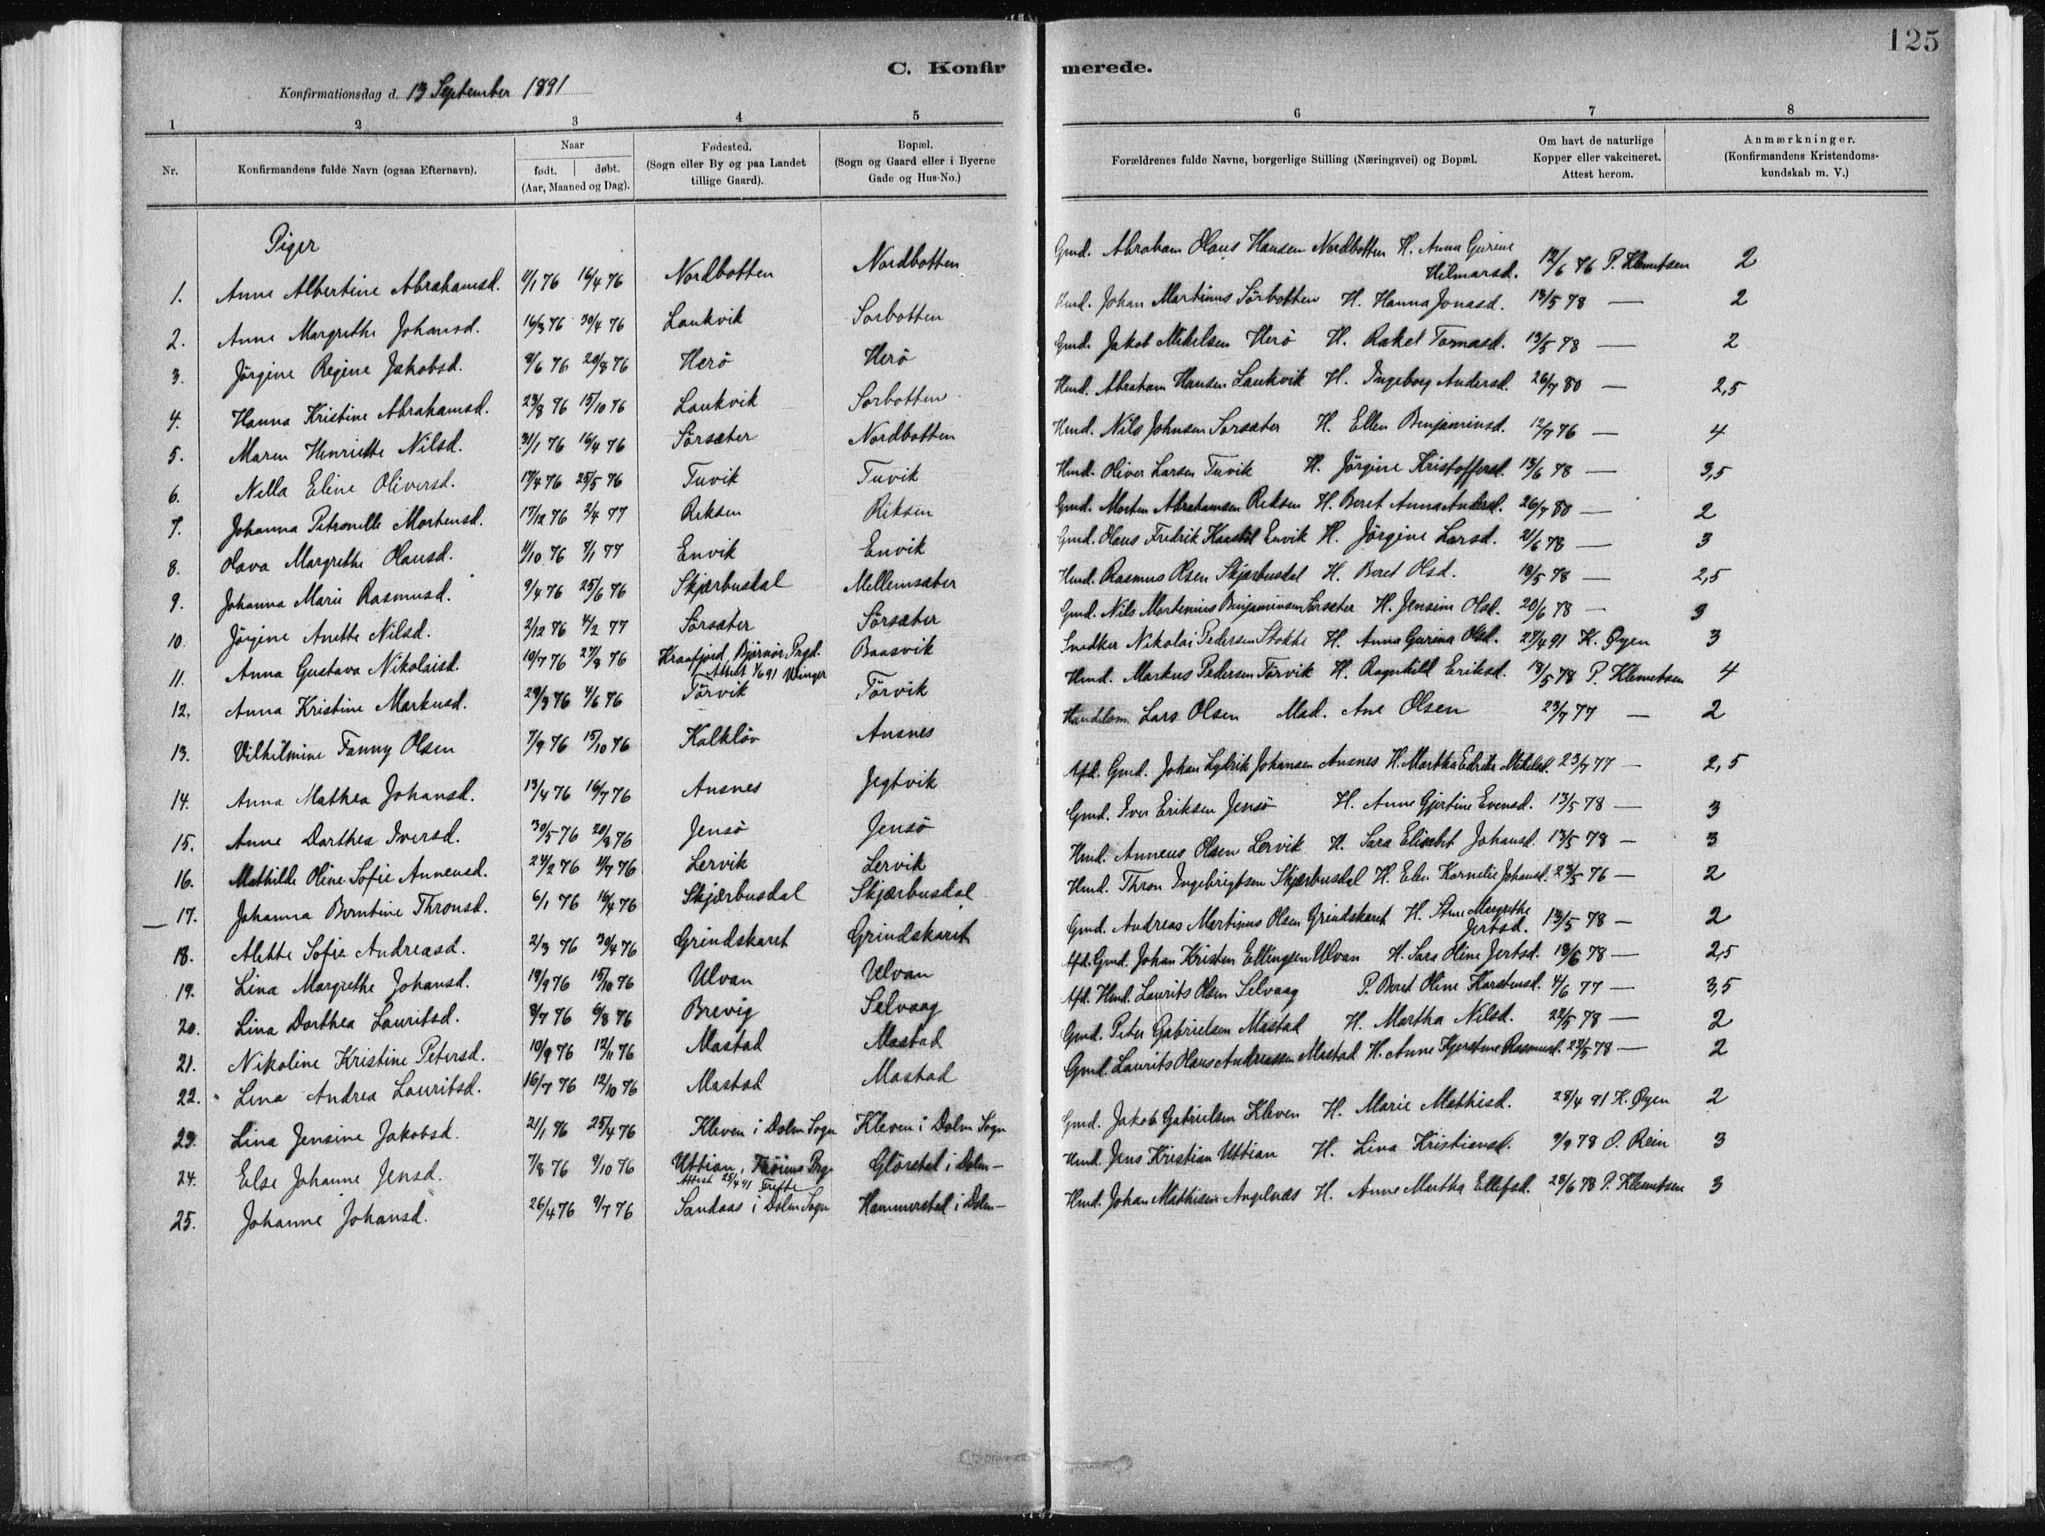 125
C. Konfirmerede.
Konfirmationsdag d. 13 September 1891
1 2 3 4 5 6 7 8
Nr. Konfirmandens fulde Navn (ogsaa Efternavn). Naar født. døbt. (Aar, Maaned og Dag). Fødested. (Sogn eller By og paa Landet tillige Gaard). Bopæl. (Sogn og Gaard eller i Byerne Gade og Hus-No.) Forældrenes fulde Navne, borgerlige Stilling (Næringsvei) og Bopæl. Om havt de naturlige Kopper eller vakcineret. Attest herom. Anmærkninger. (Konfirmandens Kristendomskundskab m. V.)
Piger
1. Anne Albertine Abrahamsd. 1/1 76 16/4 76 Nordbotten Nordbotten Gmd. Abraham Olaus Hansen Nordbotten H. Anna Gurine Hilmarsd. 12/6 76 P. Klemetsen 2
2. Anne Margrethe Johansd. 16/3 76 30/4 76 Laukvik Sørbotten Hmd. Johan Martinus Sørbotten H. Hanna Jonasd. 13/5 78 — 2
3. Jørgine Regine Jakobsd. 8/6 76 20/8 76 Herø Herø Gmd. Jakob Mikelsen Herø H. Rakel Tomasd. 13/5 78 — 2
4. Hanna Kristine Abrahamsd. 23/8 76 15/10 76 Laukvik Sørbotten Hmd. Abraham Hansen Laukvik H. Ingeborg Andersd. 26/7 80 — 2,5
5. Maren Henriette Nilsd. 31/1 76 16/4 76 Sørsæter Nordbotten Hmd. Nils Johnsen Sørsæter H. Ellen Benjaminsd. 12/7 76 — 4
6. Nella Eline Oliversd. 17/4 76 25/5 76 Tuvik Tuvik Hmd. Oliver Larsen Tuvik H. Jørgine Kristoffersd. 13/6 78 — 3,5
7. Johanna Petronelle Mortensd. 17/12 76 2/4 77 Reksen Reksen Gmd. Morten Abrahamsen Reksen H. Beret Anna Andersd. 26/7 80 — 2
8. Olava Margrethe Olausd. 1/10 76 7/1 77 Envik Envik Gmd. Olaus Fredrik Envik H. Jørgine Larsd. 21/6 78 — 3
9. Johanna Marie Rasmusd. 9/4 76 25/6 76 Skjærbusdal Mellemsæter Hmd. Rasmus Olsen Skjærbusdal H. Beret Olsd. 13/5 78 — 2,5
10. Jørgine Anette Nilsd. 2/12 76 4/2 77 Sørsæter Sørsæter Gmd. Nils Martinius Benjaminsen Sørsæter H. Jensine Olsd. 20/6 78 — 3
11. Anna Gustava Nikolaisd. 10/7 76 27/8 76 Krasfjord Bjørnør Prgd. Attest 1/6 91 Winger Baasvik Snedker Nikolai Pedersen Stokke H. Anna Gurina Olsd. 27/4 91 K. Øyen 3
12. Anna Kristine Markusd. 29/3 76 4/6 76 Tørvik Tørvik Hmd. Markus Pedersen Tørvik H. Ragnhild Eriksd. 13/5 78 P. Klemetsen 4
13. Vilhelmine Fanny Olsen 7/9 76 15/10 76 Kalkløv Ansnes Handelsm. Lars Olsen Mad. Ane Olsen 23/7 77 — 2
14. Anna Mathea Johansd. 13/4 76 16/7 76 Ansnes Jegtvik Afd. Gmd. Johan Lydrik Johansen Ansnes H. Martha Edrike Mikelsd. 23/7 77 — 2,5
15. Anne Dorthea Iversd. 30/5 76 20/8 76 Jensø Jensø Gmd. Iver Eriksen Jensø H. Anne Gjertine Evensd. 13/5 78 — 3
16. Mathilde Oline Sofie Anneusd. 24/2 76 11/7 76 Lervik Lervik Hmd. Anneus Olsen Lervik H. Sara Elisabet Johansd. 13/5 78 — 3
17. Johanna Berntine Thronsd. 6/1 76 16/4 76 Skjærbusdal Skjærbusdal Hmd. Thron Ingebrigtsen Skjærbusdal H. Elen Kornelie Johansd. 23/5 76 — 2
18. Alette Sofie Andreasd. 2/3 76 30/4 76 Grindskaret Grindskaret Gmd. Andreas Martinus Olsen Grindskaret H. Stine Margrethe Jertsd. 13/5 78 — 2
19. Lina Margrethe Johansd. 13/9 76 15/10 76 Ulvan Ulvan Afd. Gmd. Johan Kristen Ellingsen Ulvan H. Sara Oline Jertsd. 13/6 78 — 2,5
20. Lina Dorthea Lauritsd. 8/7 76 6/8 76 Brevig Selvaag Afd. Hmd. Laurits Olsen Selvaag P. Beret Oline Karstensd. 4/6 77 — 3,5
21. Nikoline Kristine Petersd. 10/9 76 12/11 76 Mastad Mastad Gmd. Peter Gabrielsen Mastad H. Martha Nilsd. 22/5 78 — 2
22. Lina Andrea Lauritsd. 16/7 76 12/10 76 Mastad Mastad Gmd. Laurits Olaus Andreassen Mastad H. Anne Kjerstine Rasmusd. 22/5 78 — 2
23. Lina Jensine Jakobsd. 21/1 76 25/4 76 Kleven i Dolm Sogn Kleven i Dolm Sogn Gmd. Jakob Gabrielsen Kleven H. Marie Mathisd. 28/4 91 K. Øyen 2
24. Else Johanne Jensd. 7/8 76 9/10 76 Uttian, Frøiens Prg. Attest 25/4 91 Glørstad i Dolm — Hmd. Jens Kristian Uttian H. Lina Kristiansd. 9/9 78 O. Rein 3
25. Johanne Johansd. 26/4 76 9/7 76 Sandaas i Dolm Sogn Hammerstad i Dolm — Hmd. Johan Mathisen Angelnæs H. Anne Martha Ellefsd. 28/6 78 P. Klemetsen 3